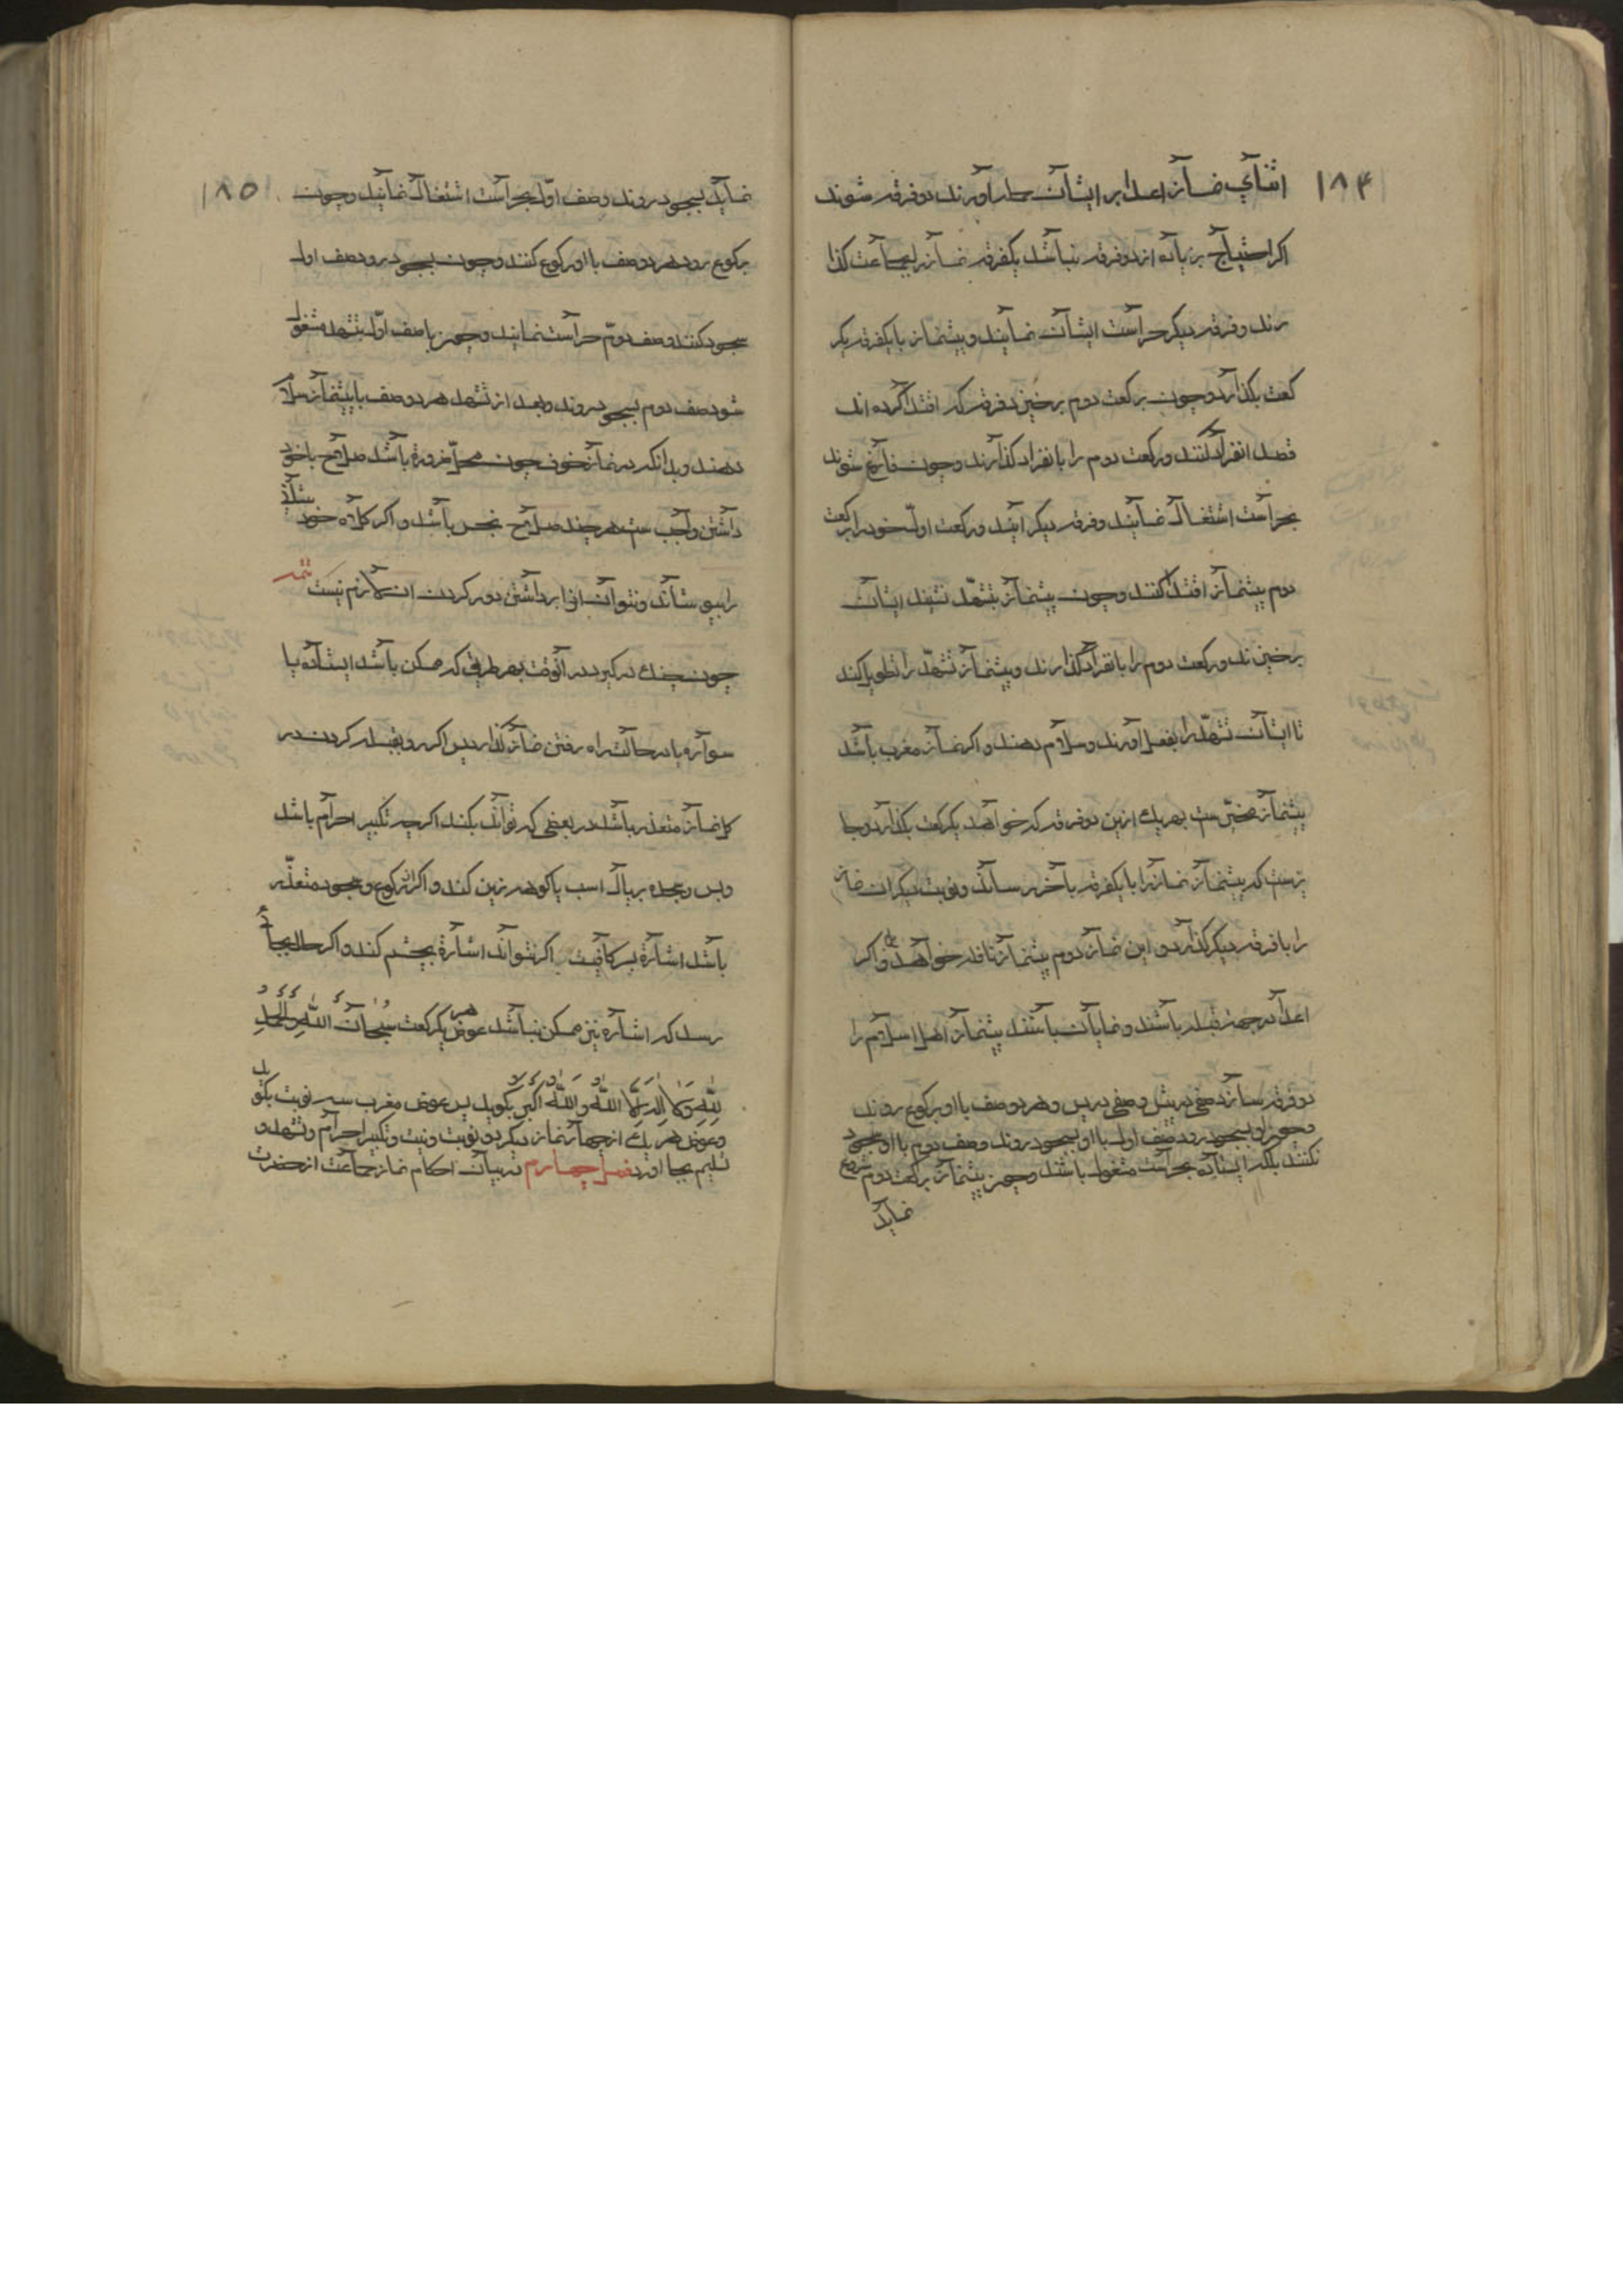 ۱۸۴
اثنآي نمآز اعدا بر ایشآن حمله آورند دو فرقه شوند
اکر احتیآج بزیآده از دو فرقه نبآشد یکفرقه نمآز را بجمآعت کذا
رند و فرقه دیکر حرآست ایشآن نمآیند و پیشنماز با یکفرقه یکر
کعت بکذارد و چون برکعت دوم برخیزد فرقه که اقتدآ کرده اند
قصد انفرآد کنند و رکعت دوم را بانفراد کذآرند و چون فآرغ شوند
بحرآست اشتغال نمآیند و فرقه دیکر آیند و رکعت اولّ خود را برکعت
دوم پیشنمآز اقتدآ کنند و چون پیشنمآز بتشهّد نشیند ایشآن
برخیزند و رکعت دوم را بانفرآد کذارند و پیشنمآز تشهّد را تطویل کند
تا ایشآن تشهّد را بفعل آورند و سلآم دهند و اکر نمآز مغرب بآشد
پیشنمآز مخیّر ست بهر یك ازین دو فرقه که خوآهد یکرکعت بکذآرد و جا
یزست که پیشنمآز نمآز را با یکفرقه بآخر رسآند و نوبت دیکر ان نمآز
را با فرقه دیکر کذآرد و این نمآز دوم پیشنمآز نافله خوآهد بود و اکر
اعدآ در جهة قبله بآشند و نمایآن بآشند پیشنمآز اهل اسلآم را
دو فرقه سازد صفی در پیش و صفی در پس و هر دو صف با او برکوع روند
و چون او بسجود رود صف اول با او بسجود روند و صف دوم با او سجود
نکنند بلکه ایستآده بحرآست مشغول باشند و چون پیشنمآز برکعت دوم شروع
نمآید
۱۸۵
نمآید بسجود روند و صف اولّ بحرآست اشتغآل نمآیند و چون
برکوع رود هر دو صف با او رکوع کنند و چون بسجود رود صف اول
سجود کنند و صف دومّ حرآست نمایند و چون با صف اولّ بتشهد مشغول
شود صف دوم بسجود روند و بعد از تشهد هر دو صف با پیشنمآز سلآم
دهند و بدانکه در نمآز خوف چون محلّ ضرورة بآشد صلآح با خود
دآشتن وآجب ست هر چند صلآح نجس بآشد و اکر کلآه خود پیشآنی
را بپوشآند و نتوآن آنرا برداشتن دور کردن ان لآزم نیست تتمه
چون جنك در کیرد در آنوقت بهر طریق که ممکن بآشد ایستآده یا
سوآره یا در حالت راه رفتن نمآز کذآرد پس اکر رو بقبله کردن در
کل نمآز متعذر بآشد در بعضی که توآند بکند اکرچه تکبیر احرآم باشد
و بس و سجده بر یال اسب یا کوهه زین کند و اکر ان رکوع و سجود متعذّر
بآشد اشآرة بسر کافیست و اکر نتوآند اشآرة بچشم کند و اکر حال بجآئی
رسد که اشآره نیز ممکن نبآشد عوض هر یکرکعت سُبْحانَ اللّٰهِ وَالْحَمْدُ
لِلّٰهِ وَلا اِلٰهَ اِلَّا اللّٰهُ وَاللّٰهُ اَکْبَرُ بکوید پس عوض مغرب سه نوبت بکوید
و عوض هر یك از چهآر نماز دیکر دو نوبت و نیت و تکبیر احرآم و تشهد و
تسلیم بجا آورد فصل چهآرم در بیآن احکام نماز جمآعت از حضرت